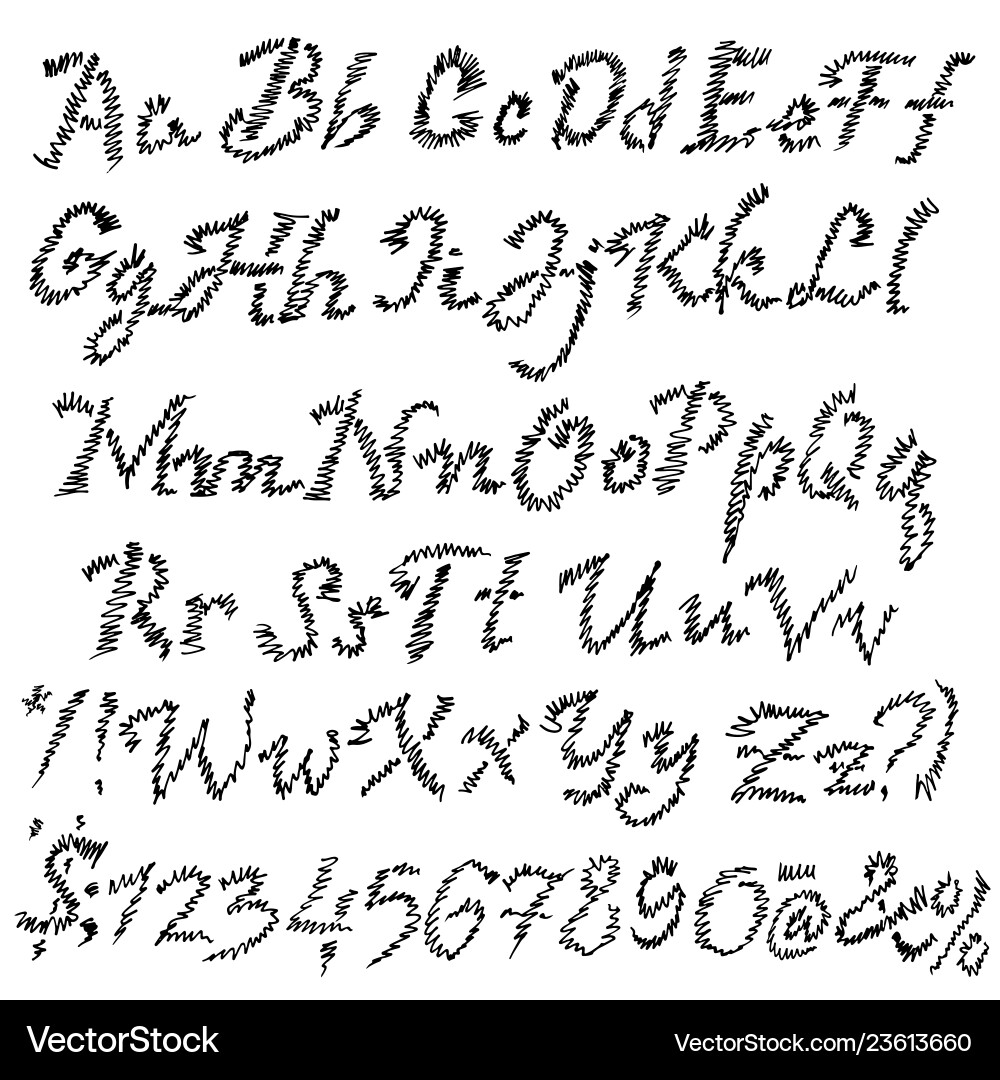 Aa Bb Cc Dd Ee Ff
Gg Hh Ii Jj Kk Ll
Mm Nn Oo Pp Qq
Rr Ss Tt Uu Vv
! Ww Xx Yy Zz ? )
$ 1 2 3 4 5 6 7 8 9 0 @ & %
VectorStock® VectorStock.com/23613660